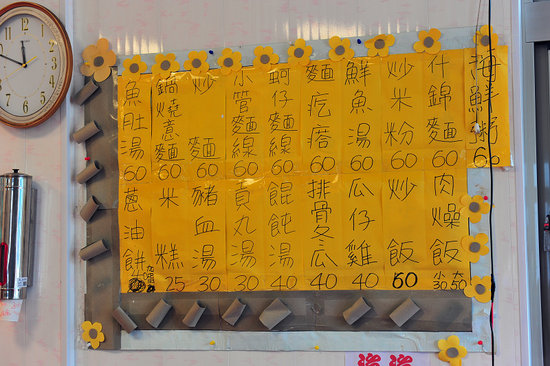 海鮮粥 60
什錦麵 60
炒米粉 60
鮮魚湯 60
麵疙瘩 60
蚵仔麵線 60
小管麵線 60
炒麵 60
鍋燒意麵 60
魚肚湯 60
肉燥飯 小30 大50
炒飯 60
瓜仔雞 40
排骨冬瓜 40
餛飩湯 40
貢丸湯 30
豬血湯 30
米糕 25
蔥油餅